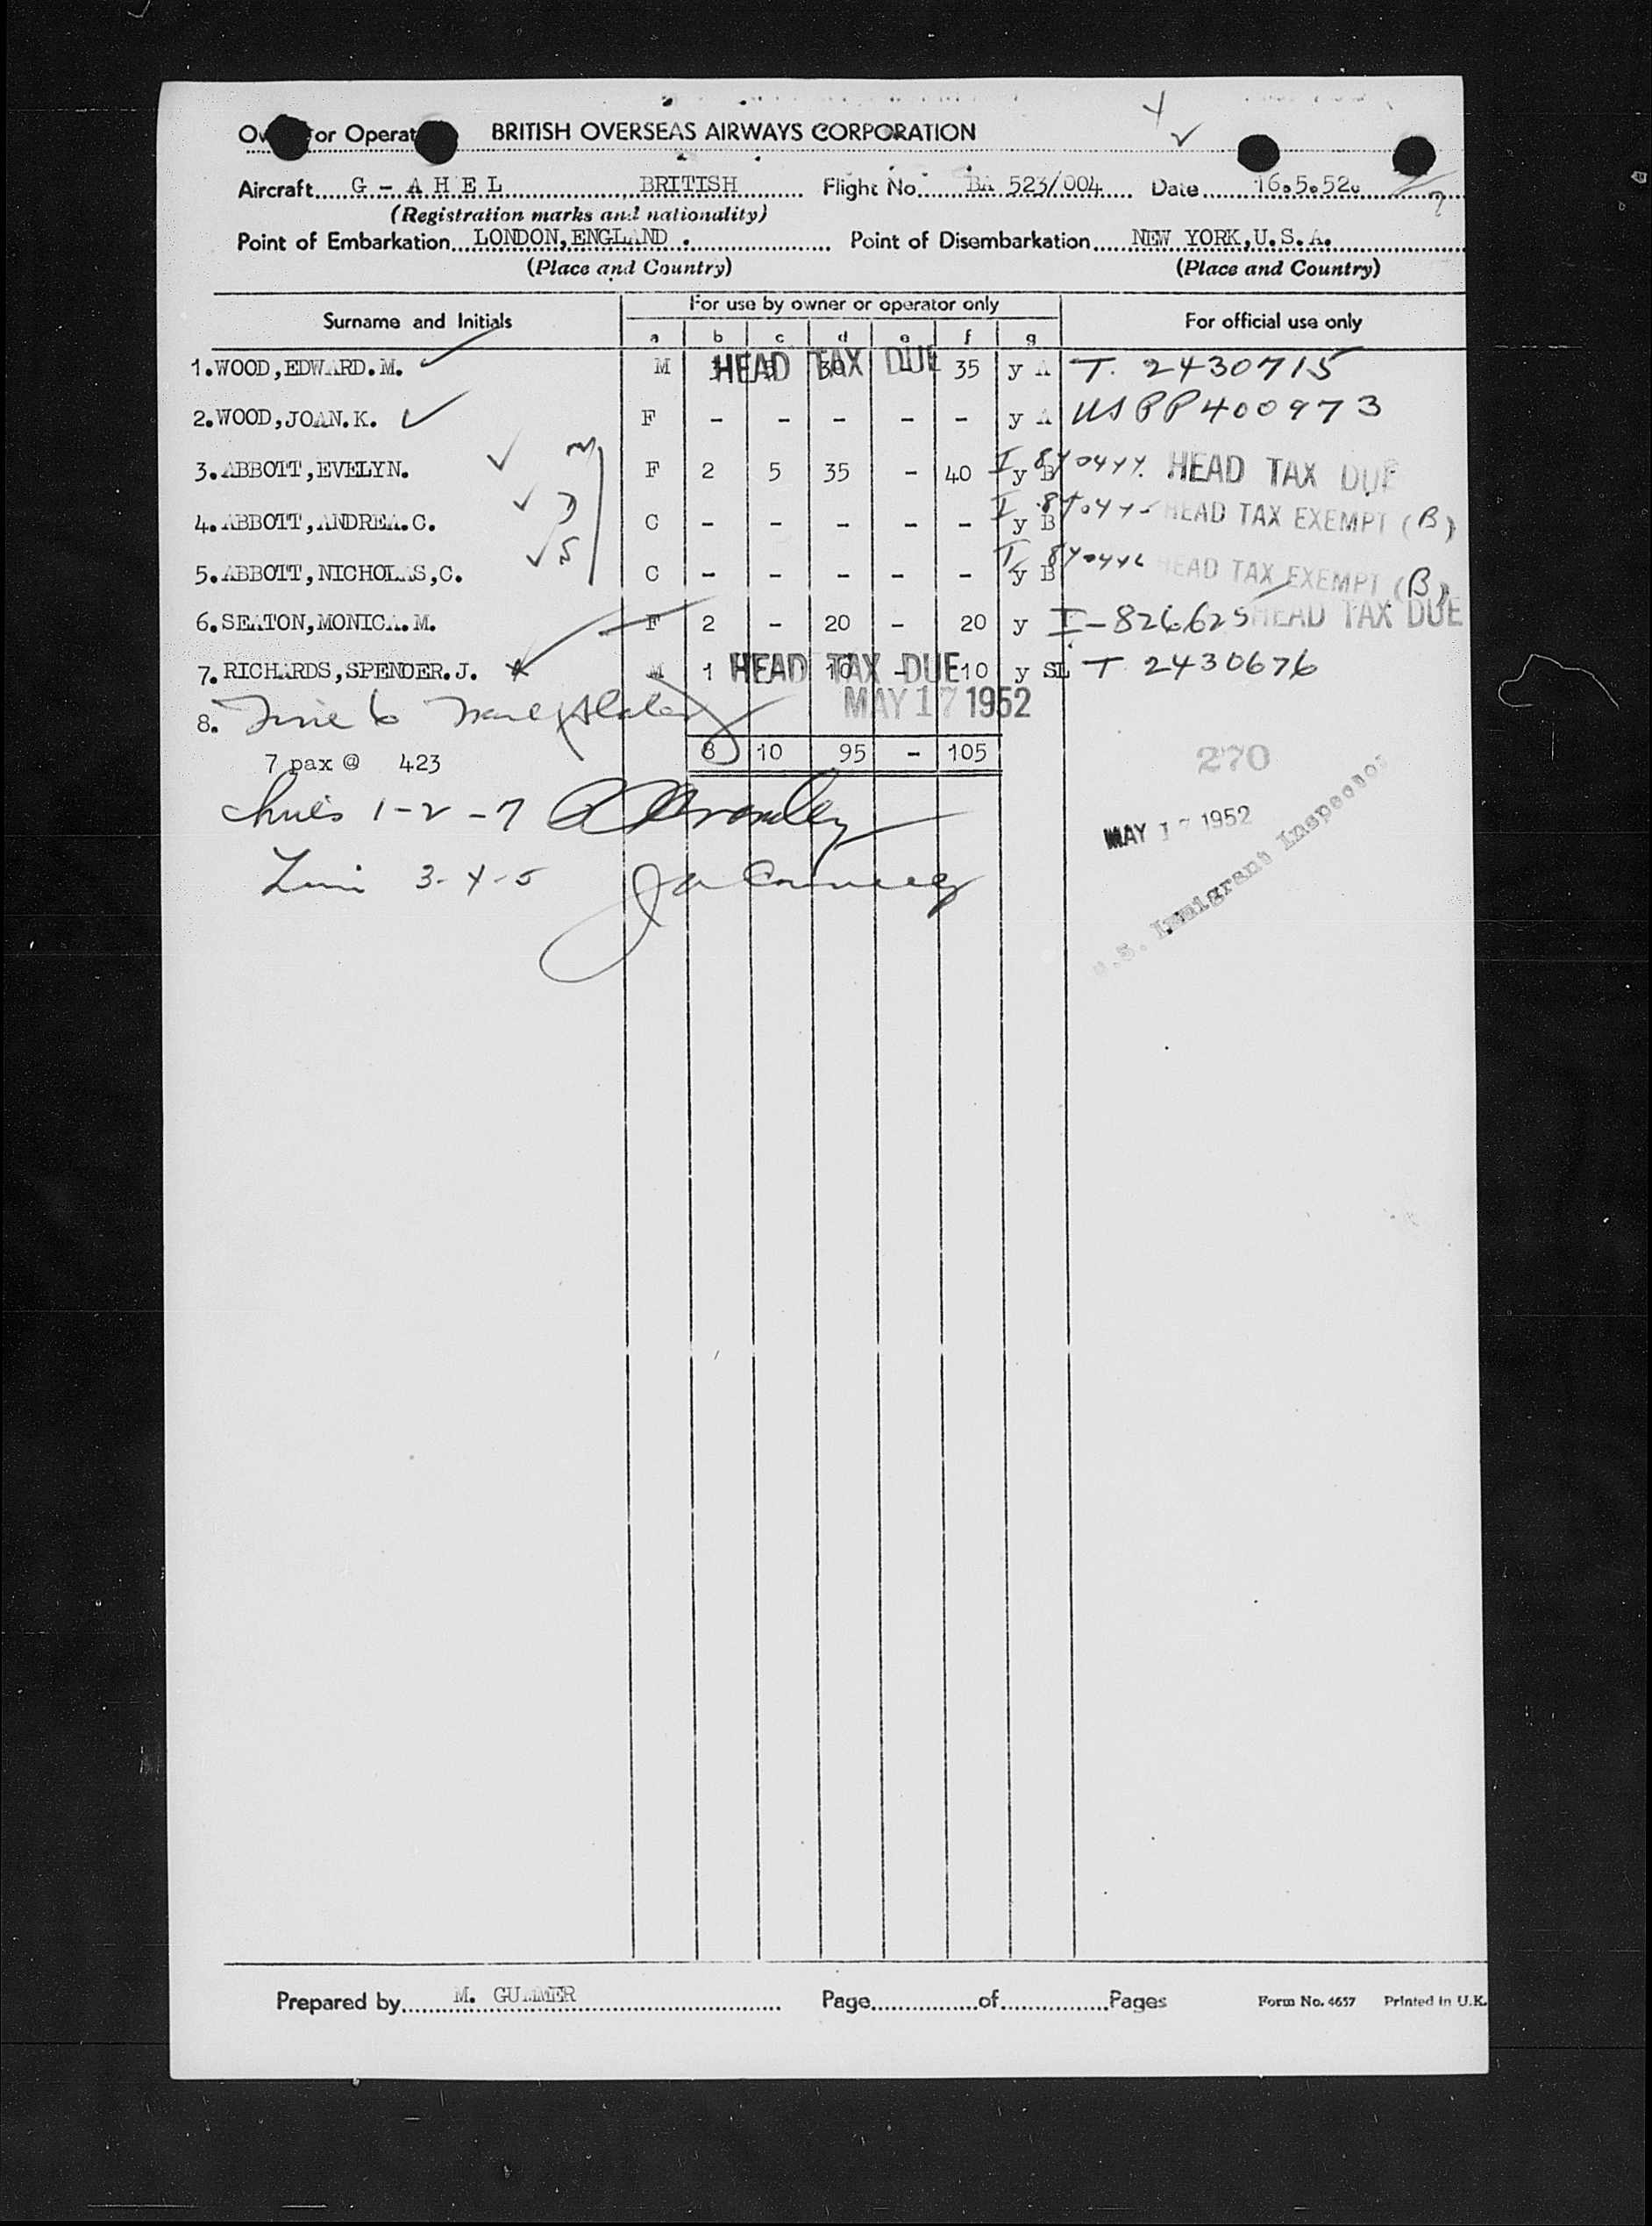 Owner or Operator BRITISH OVERSEAS AIRWAYS CORPORATION
Aircraft G - A H E L BRITISH Flight No. BA 523/004 Date 16.5.52.
(Registration marks and nationality)
Point of Embarkation LONDON,ENGLAND. Point of Disembarkation NEW YORK,U.S.A.
(Place and Country) (Place and Country)
Surname and Initials For use by owner or operator only For official use only
a b c d e f g
1.WOOD,EDWARD.M. M HEAD TAX DUE 35 y A T. 2430715
2.WOOD,JOAN.K. F - - - - - y A USPP400973
3.ABBOTT,EVELYN. F 2 5 35 - 40 y B HEAD TAX DUE
4.ABBOTT,ANDREA.C. C - - - - - y B HEAD TAX EXEMPT (B)
5.ABBOTT,NICHOLAS,C. C - - - - - y B HEAD TAX EXEMPT (B)
6.SEATON,MONICA.M. F 2 - 20 - 20 y I-826625 HEAD TAX DUE
7.RICHARDS,SPENCER.J. M 1 HEAD TAX DUE 10 - 10 y SL T 2430676
MAY 17 1952
8.
8 10 95 - 105
7 pax @ 423
270
1-2-7
MAY 17 1952
3-4-5
U.S. Immigrant Inspector
Prepared by M. GUMMER Page of Pages Form No. 4657 Printed in U.K.